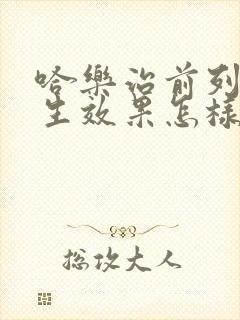 哈樂治前列
生效果怎樣
總攻大人